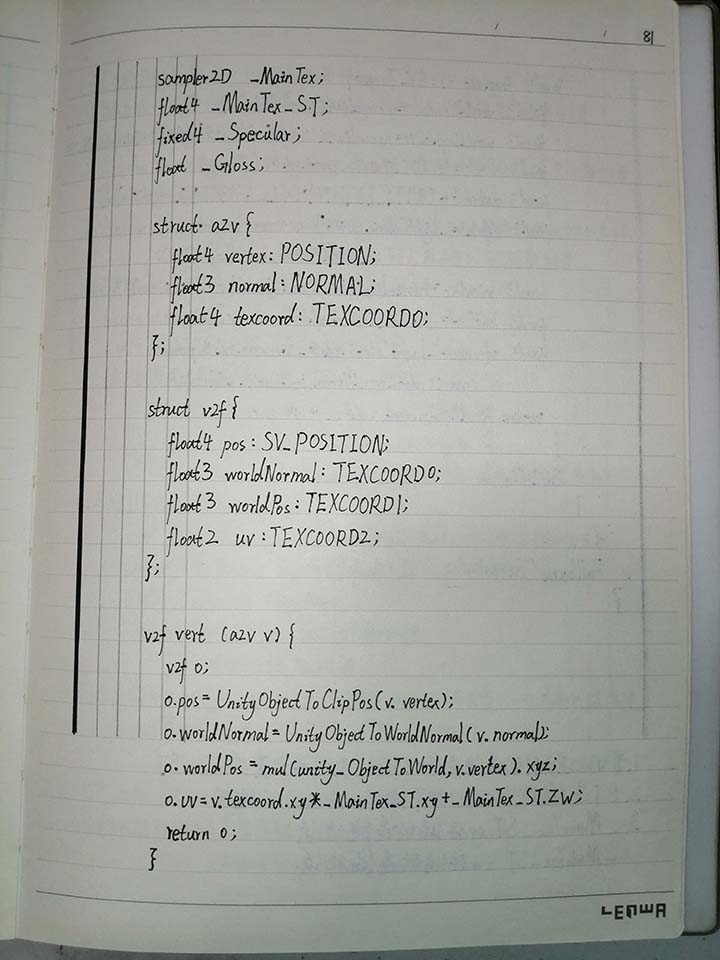 81
sampler2D _MainTex;
float4 _MainTex_ST;
fixed4 _Specular;
float _Gloss;
struct a2v {
float4 vertex: POSITION;
float3 normal: NORMAL;
float4 texcoord: TEXCOORD0;
};
struct v2f {
float4 pos: SV_POSITION;
float3 worldNormal: TEXCOORD0;
float3 worldPos: TEXCOORD1;
float2 uv: TEXCOORD2;
};
v2f vert (a2v v) {
v2f o;
o.pos = UnityObjectToClipPos(v.vertex);
o.worldNormal = UnityObjectToWorldNormal(v.normal);
o.worldPos = mul(unity_ObjectToWorld, v.vertex).xyz;
o.uv = v.texcoord.xy * _MainTex_ST.xy + _MainTex_ST.zw;
return o;
}